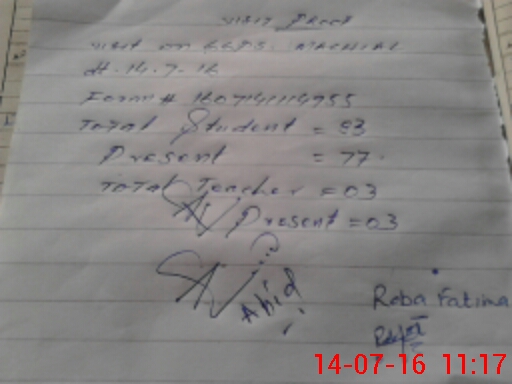 Visit Proof
Visit on GGPS. MACHIAL
dt. 14.7.16
Form # 160714114955
Total Student = 93
Present = 77.
Total Teacher = 03
Present = 03
Abid
Roba Fatima
14-07-16 11:17